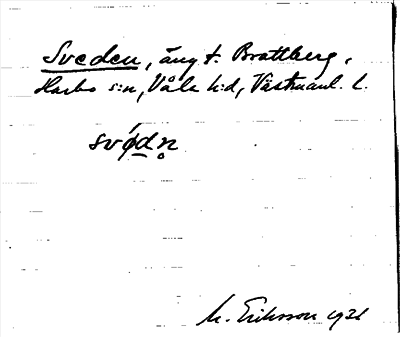 Sveden, äng t. Brattberg,
Harbo s:n, Våla h:d, Västmanl. l.
svǿdn̥
M. Eriksson 1931